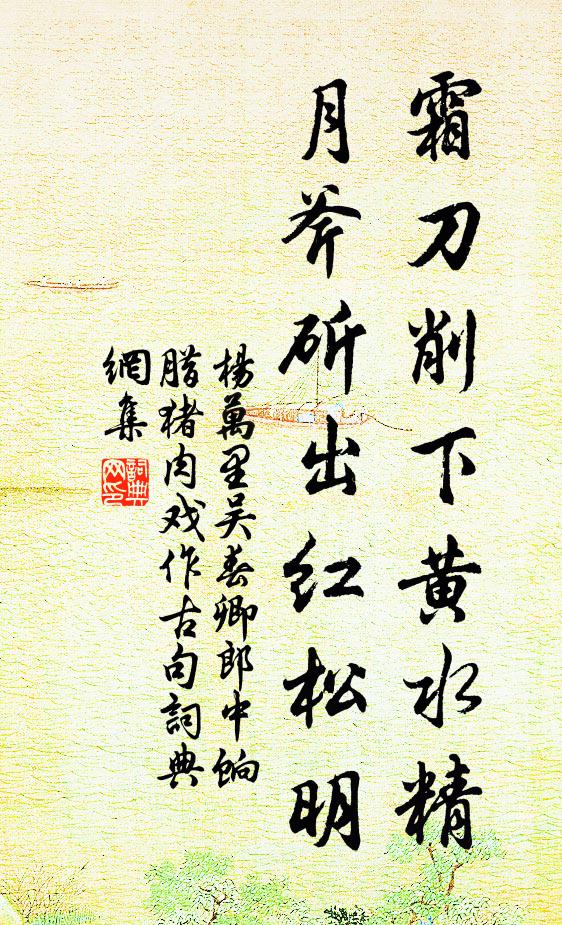 霜刀削下黄水精
月斧斫出红松明
楊萬里吴春卿郎中餉
腊猪肉戏作古句詞典
網集
詞典
网印